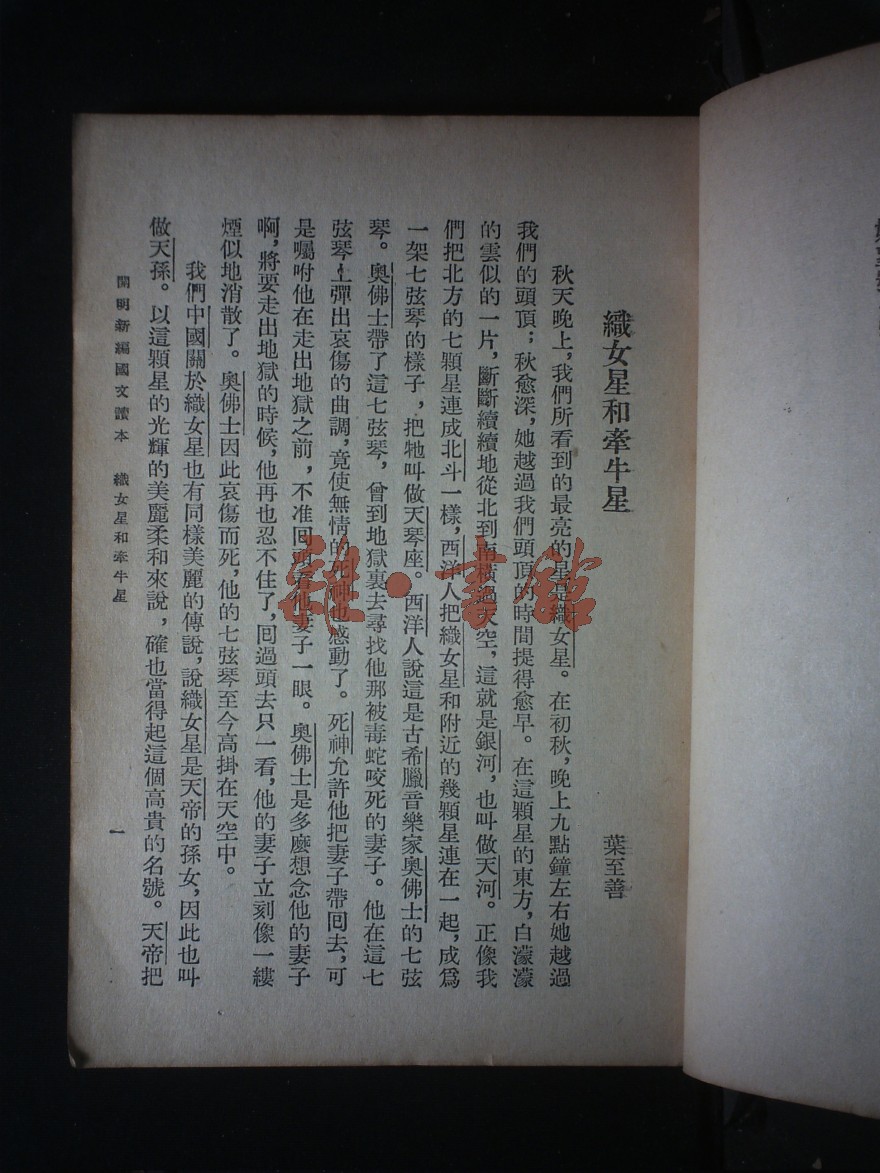 織女星和牽牛星
葉至善
秋天晚上，我們所看到的最亮的星是織女星。在初秋，晚上九點鐘左右她越過
我們的頭頂；秋愈深，她越過我們頭頂的時間提得愈早。在這顆星的東方，白濛濛
的雲似的一片，斷斷續續地從北到南橫過天空，這就是銀河，也叫做天河。正像我
們把北方的七顆星連成北斗一樣，西洋人把織女星和附近的幾顆星連在一起，成爲
一架七弦琴的樣子，把牠叫做天琴座。西洋人說這是古希臘音樂家奧佛士的七弦
琴。奧佛士帶了這七弦琴，曾到地獄裏去尋找他那被毒蛇咬死的妻子。他在這七
弦琴上彈出哀傷的曲調，竟使無情的死神也感動了。死神允許他把妻子帶回去，可
是囑咐他在走出地獄之前，不准回頭看他妻子一眼。奧佛士是多麼想念他的妻子
啊，將要走出地獄的時候，他再也忍不住了，回過頭去只一看，他的妻子立刻像一縷
煙似地消散了。奧佛士因此哀傷而死，他的七弦琴至今高掛在天空中。
我們中國關於織女星也有同樣美麗的傳說，說織女星是天帝的孫女，因此也叫
做天孫。以這顆星的光輝的美麗柔和來說，確也當得起這個高貴的名號。天帝把
開明新編國文讀本　織女星和牽牛星　一
雜·書館